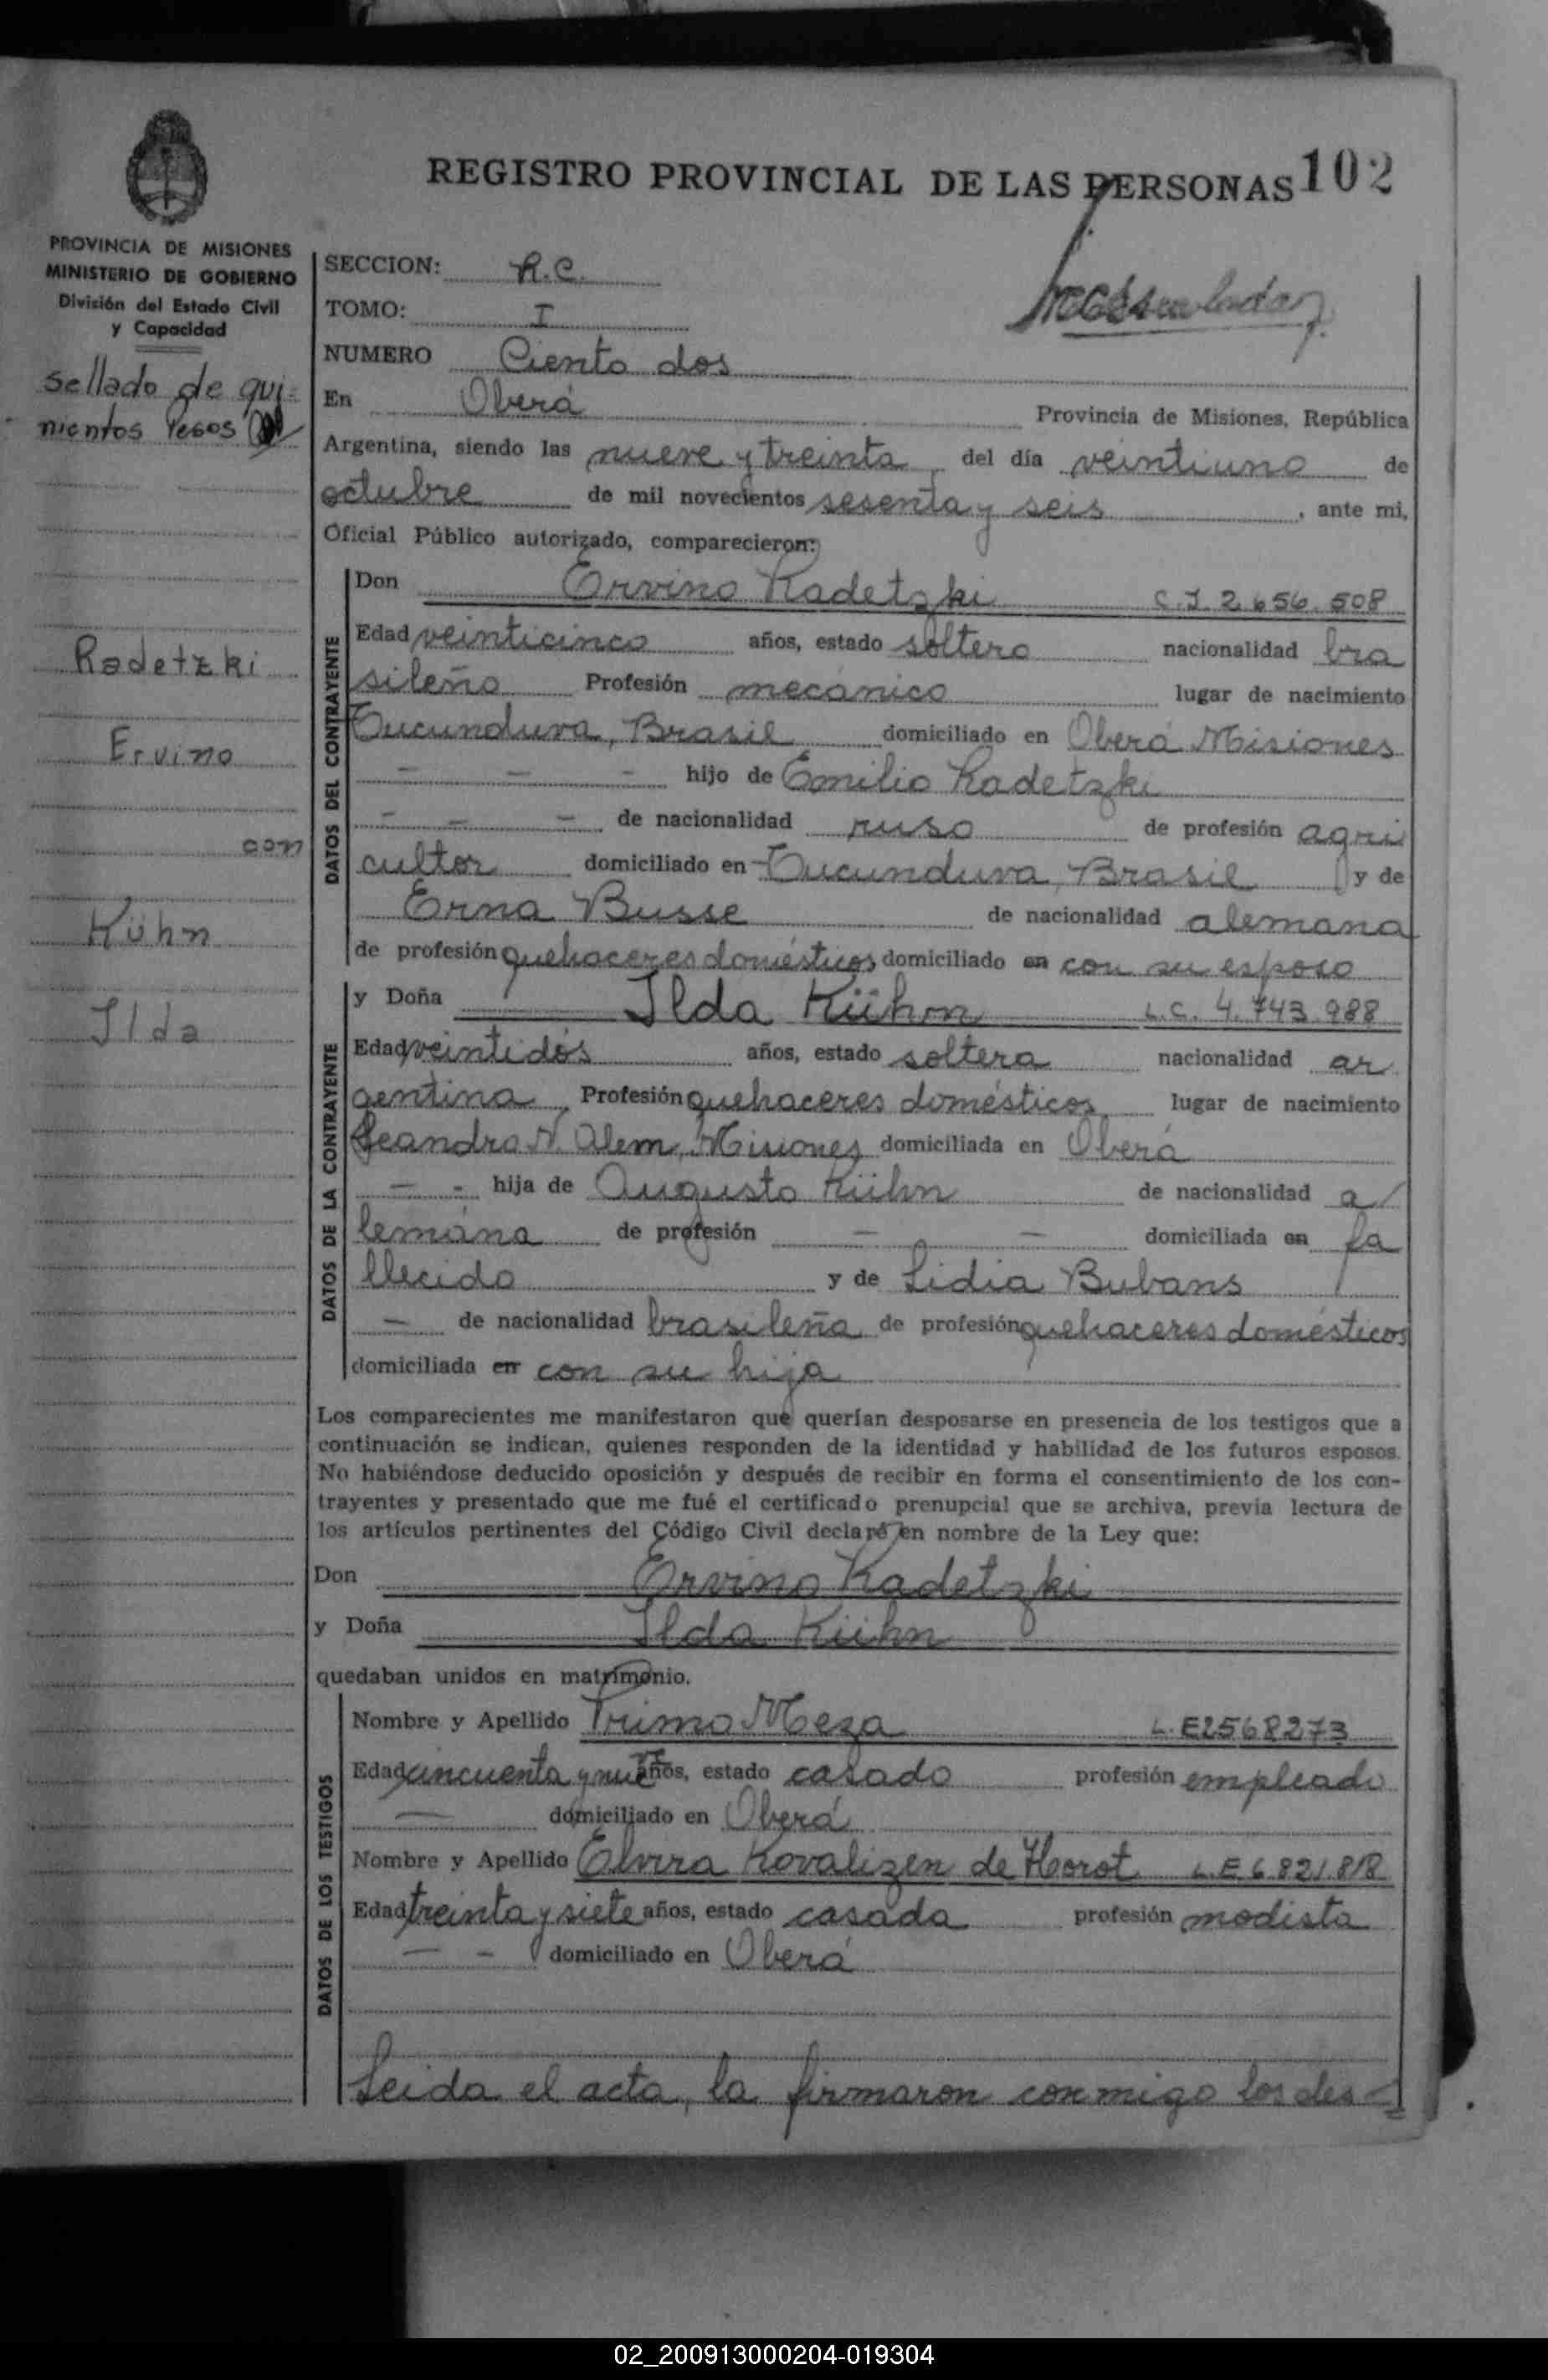 REGISTRO PROVINCIAL DE LAS PERSONAS 102
PROVINCIA DE MISIONES
MINISTERIO DE GOBIERNO
División del Estado Civil
y Capacidad
Sellado de qui=
nientos Pesos
Radetzki
Ervino
con
Kühn
Ilda
SECCION: R.C.
TOMO: I
NUMERO Ciento dos
En Oberá Provincia de Misiones, República
Argentina, siendo las nueve y treinta del día veintiuno de
octubre de mil novecientos sesenta y seis, ante mi,
Oficial Público autorizado, comparecieron:
DATOS DEL CONTRAYENTE
Don Ervino Radetzki C.I. 2.656.508
Edad veinticinco años, estado soltero nacionalidad bra
sileño Profesión mecánico lugar de nacimiento
Tucunduva, Brasil domiciliado en Oberá Misiones
- - - hijo de Emilio Radetzki
- - - de nacionalidad ruso de profesión agri
cultor domiciliado en Tucunduva, Brasil y de
Erna Busse de nacionalidad alemana
de profesión quehaceres domésticos domiciliado en con su esposo
DATOS DE LA CONTRAYENTE
y Doña Ilda Kühn L.C. 4.743.988
Edad veintidós años, estado soltera nacionalidad ar
gentina, Profesión quehaceres domésticos, lugar de nacimiento
Leandro N. Alem, Misiones domiciliada en Oberá
- - hija de Augusto Kühn de nacionalidad a
lemana de profesión - - domiciliada en fa
llecido y de Lidia Bubans
- de nacionalidad brasileña de profesión quehaceres domésticos
domiciliada en con su hija
Los comparecientes me manifestaron que querían desposarse en presencia de los testigos que a
continuación se indican, quienes responden de la identidad y habilidad de los futuros esposos.
No habiéndose deducido oposición y después de recibir en forma el consentimiento de los con-
trayentes y presentado que me fué el certificado prenupcial que se archiva, previa lectura de
los artículos pertinentes del Código Civil declaré en nombre de la Ley que:
Don Ervino Radetzki
y Doña Ilda Kühn
quedaban unidos en matrimonio.
DATOS DE LOS TESTIGOS
Nombre y Apellido Primo Meza L.E 2568273
Edad cincuenta y nueve años, estado casado profesión empleado
- domiciliado en Oberá
Nombre y Apellido Elvira Kovalizen de Horot L.E 6.821.818
Edad treinta y siete años, estado casada profesión modista
- - domiciliado en Oberá
Leida el acta, la firmaron conmigo los des=
02_200913000204-019304